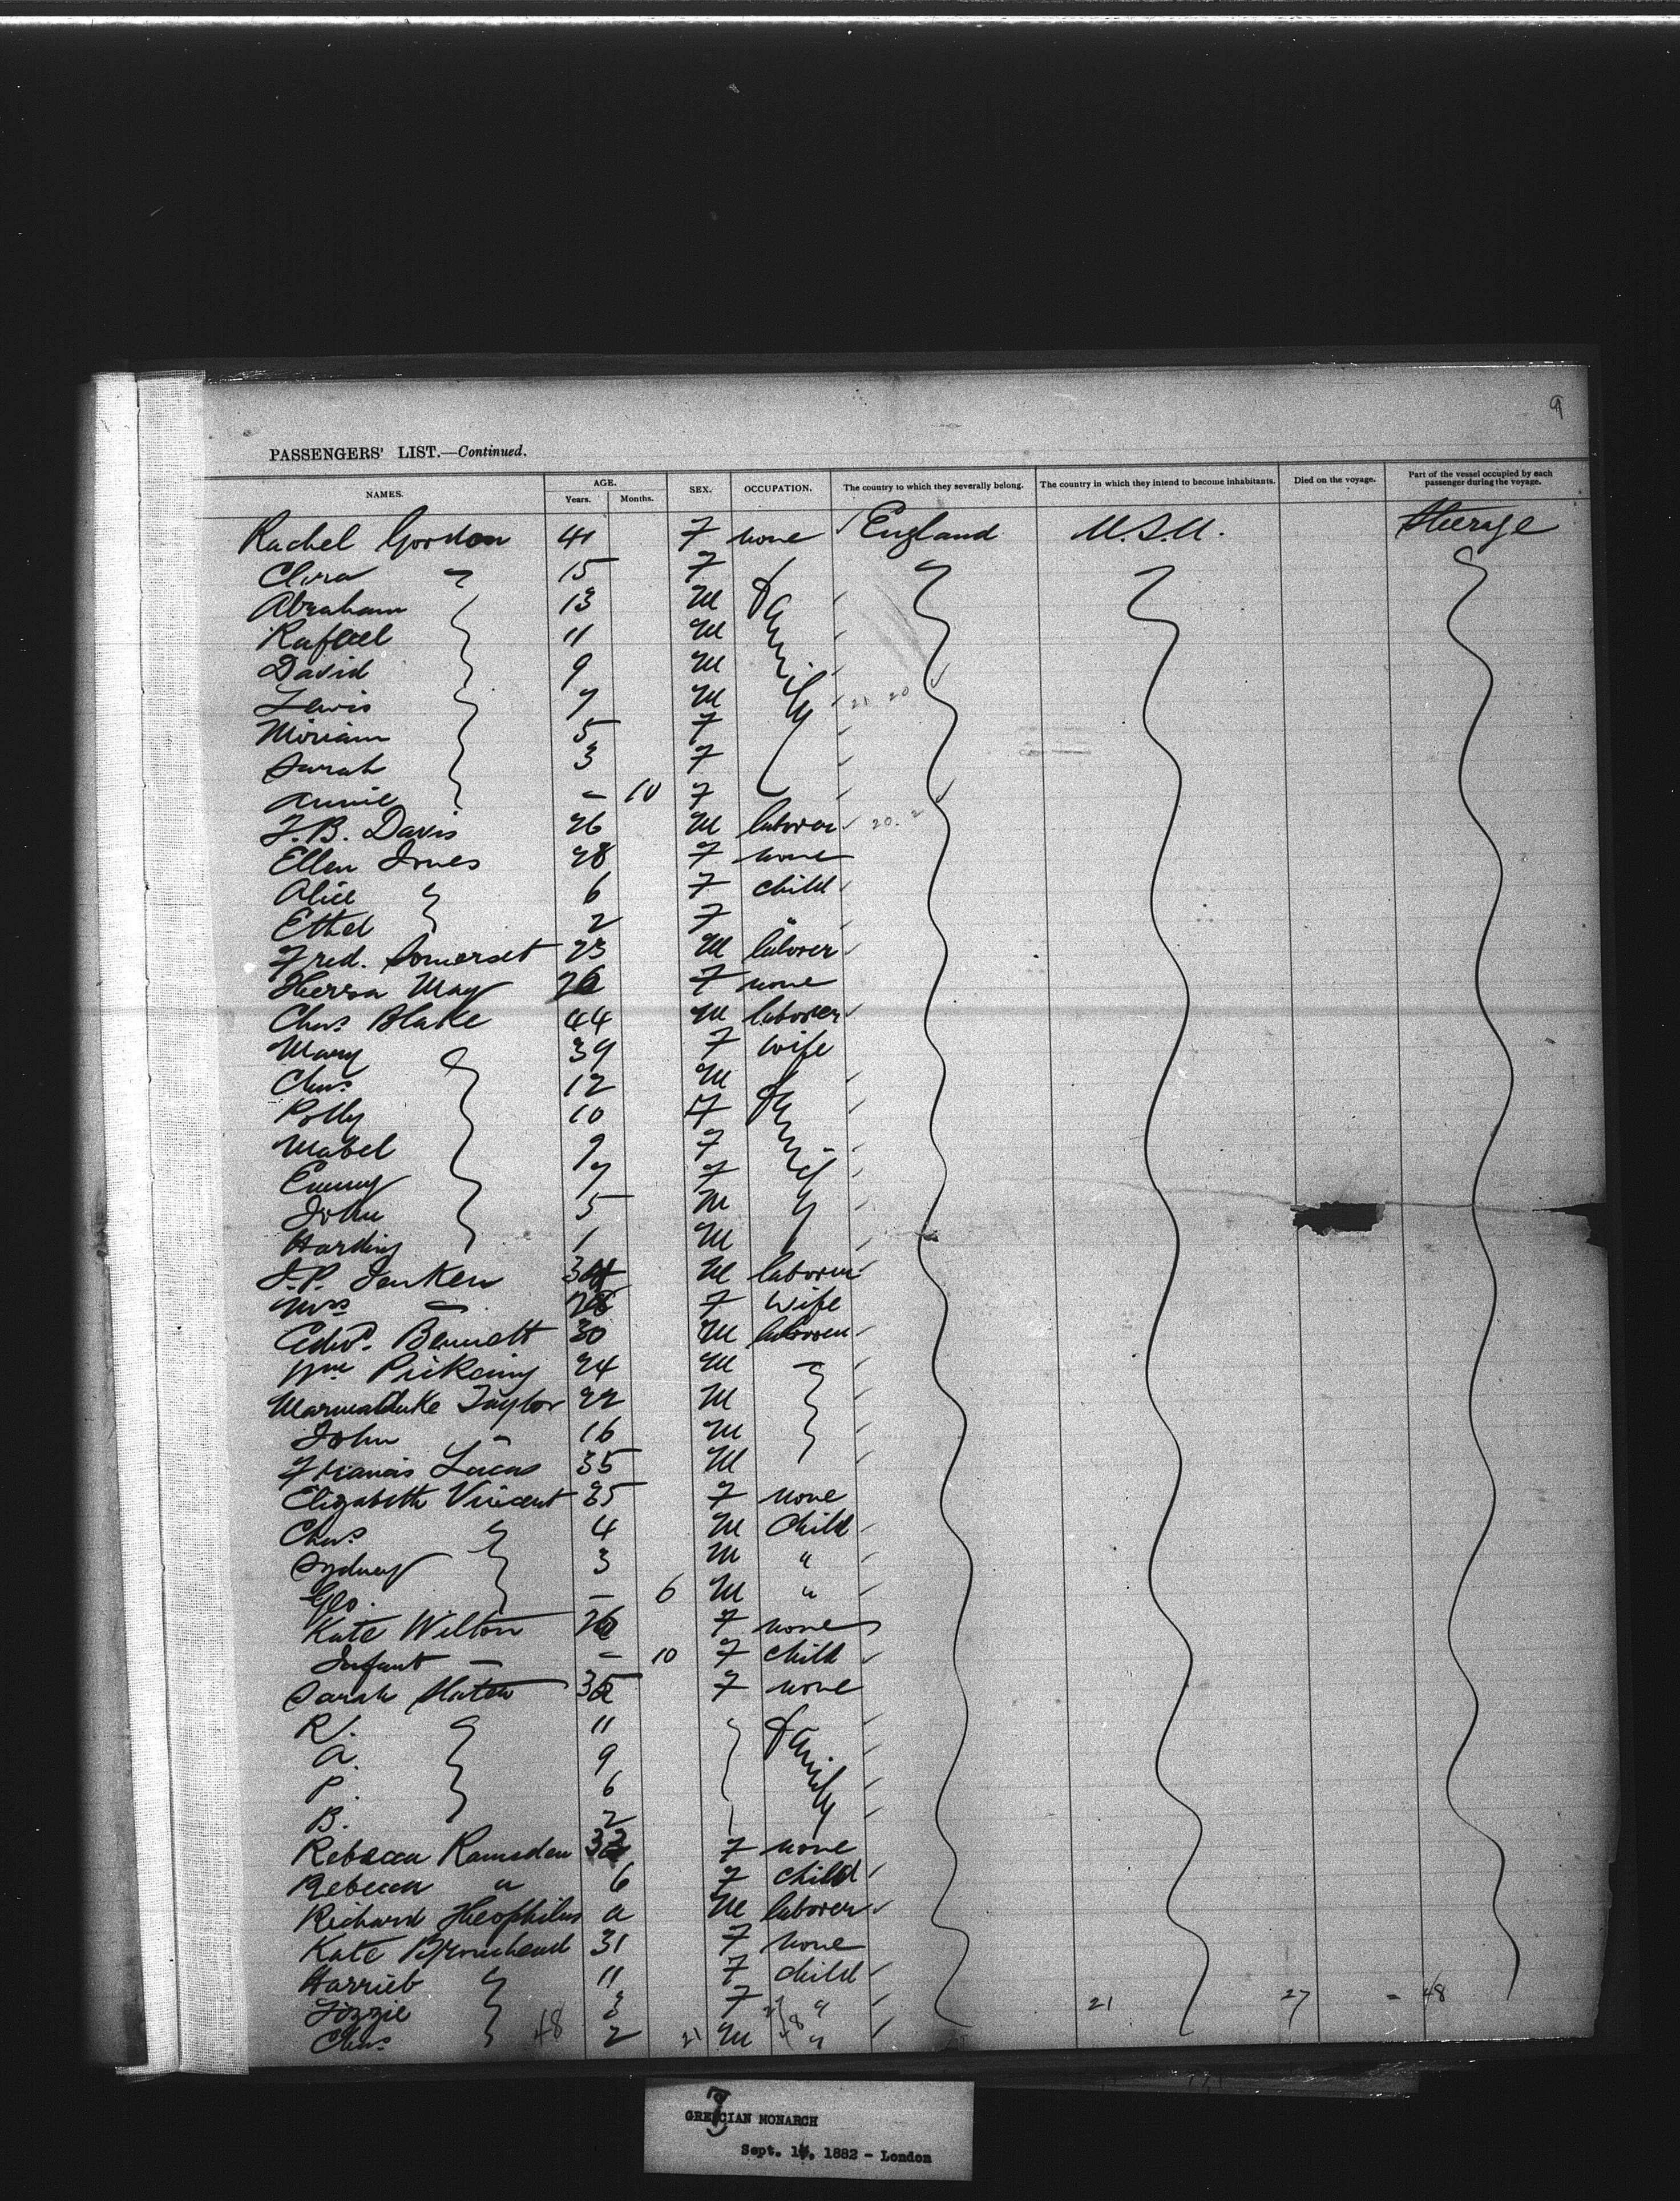 9
PASSENGERS' LIST.—Continued.
NAMES. AGE. Years. Months. SEX. OCCUPATION. The country to which they severally belong. The country in which they intend to become inhabitants. Died on the voyage. Part of the vessel occupied by each passenger during the voyage.
Rachel Gordon 41 F none England U.S.A. Steerage
Clara 15 F Family
Abraham 13 M
Rafael 11 M
David 9 M
Lewis 7 M 21 20
Miriam 5 F
Sarah 3 F
Annie – 10 F
J.B. Davis 26 M laborer 20. 2
Ellen Jones 28 F none
Alice 6 F child
Ethel 2 F "
Fred. Somerset 23 M laborer
May F none
Chas Blake 44 M laborer
Mary 39 F wife
Chas 12 M Family
Polly 10 F
Mabel 9 F
Emmy 7 F
John 5 M
Harding 1 M
J.P. Jenken 34 M laborer
Mrs – 28 F Wife
Edwd. Bennett 30 M laborer
Wm Pickering 24 M
Marmaduke Taylor 22 M
John – 16 M
Francis Lucas 35 M
Elizabeth Vincent 35 F none
Chas 4 M Child
Sydney 3 M "
Geo. – 6 M "
Kate Wilton 26 F none
Infant – – 10 F child
Sarah 35 F none
R. 11 Family
A. 9
P. 6
B. 2
Rebecca Ramsden F none
Rebecca " 6 F child
Richard Theophilus a M laborer
Kate 31 F none
Harriet 11 F child
Lizzie 3 F " 21 27 = 48
Chas 48 2 21 M "
GRECIAN MONARCH
Sept. 1882 - London